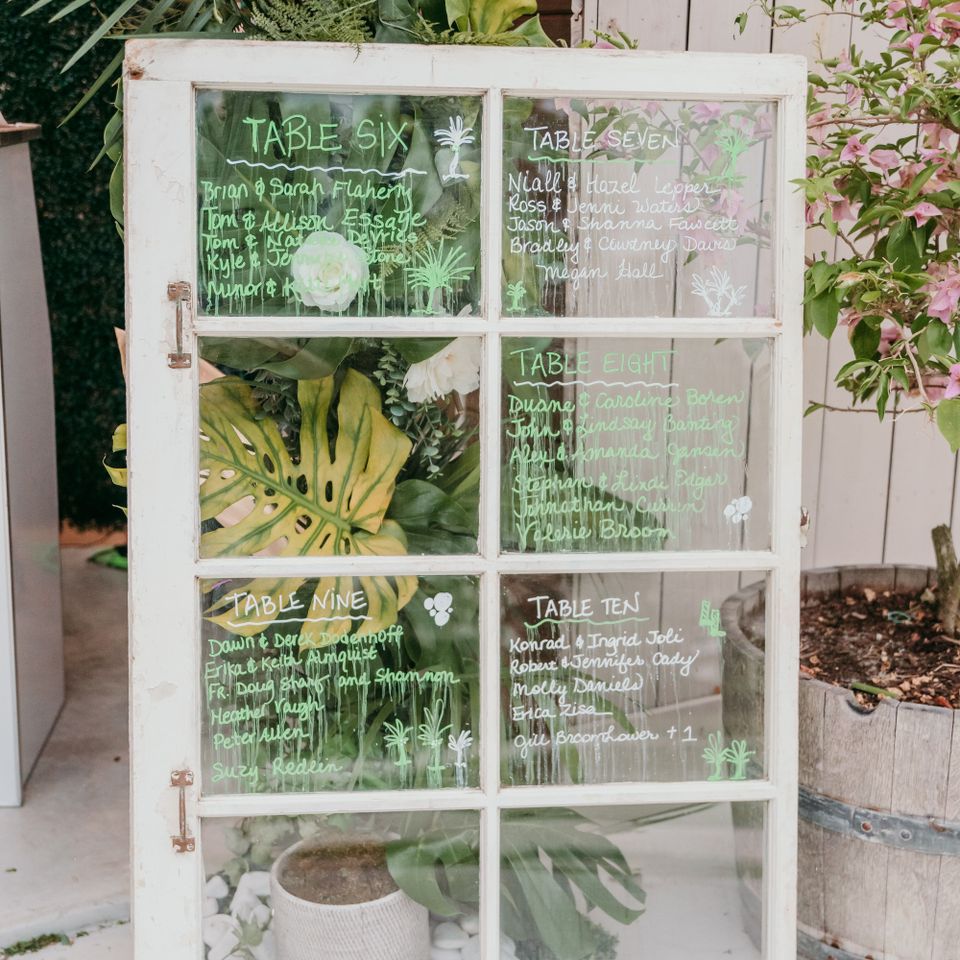 TABLE SIX
Brian & Sarah Flaherty
Tom & Allison Essage
Tom & Natalie DeVries
Kyle &
Junor &
TABLE SEVEN
Niall & Hazel Lepper
Ross & Jenni Waters
Jason & Shanna Fawcett
Bradley & Courtney Davis
Megan Hall
TABLE EIGHT
Duane & Caroline Boren
John & Lindsay Banting
Aley & Amanda Jansen
Stephan & Lindi Edgar
Johnathan Curren
Valerie Broom
TABLE NINE
Dawn & Derek Dodenhoff
Erika & Keith Almquist
FR. Doug Sharp and Shannon
Heather Vaugh
Peter Allen
Suzy Redlin
TABLE TEN
Konrad & Ingrid Joli
Robert & Jennifer Cady
Molly Daniels
Erica Zisa
Gill Broomhower +1